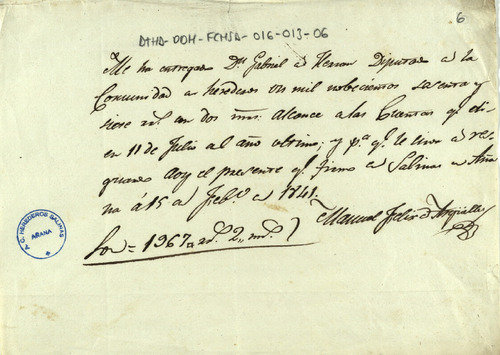 6
ATHA-DDH-FCHSA-016-013-06
Me ha entregado Dn. Gabriel de Herran Diputado de la
Comunidad de herederos un mil nobecientos sesenta y
siete rs. con dos mrs. alcance a las Cuentas qe. di
en 11 de Julio del año ultimo; y pa. qe. le sirva de res-
guardo doy el presente qe. firmo en Salinas de Aña-
na á 15 de Febo. de 1841.
Manuel Felix de
Son = 1967 rs. 2 mrs.
C. HEREDEROS SALINAS
AÑANA